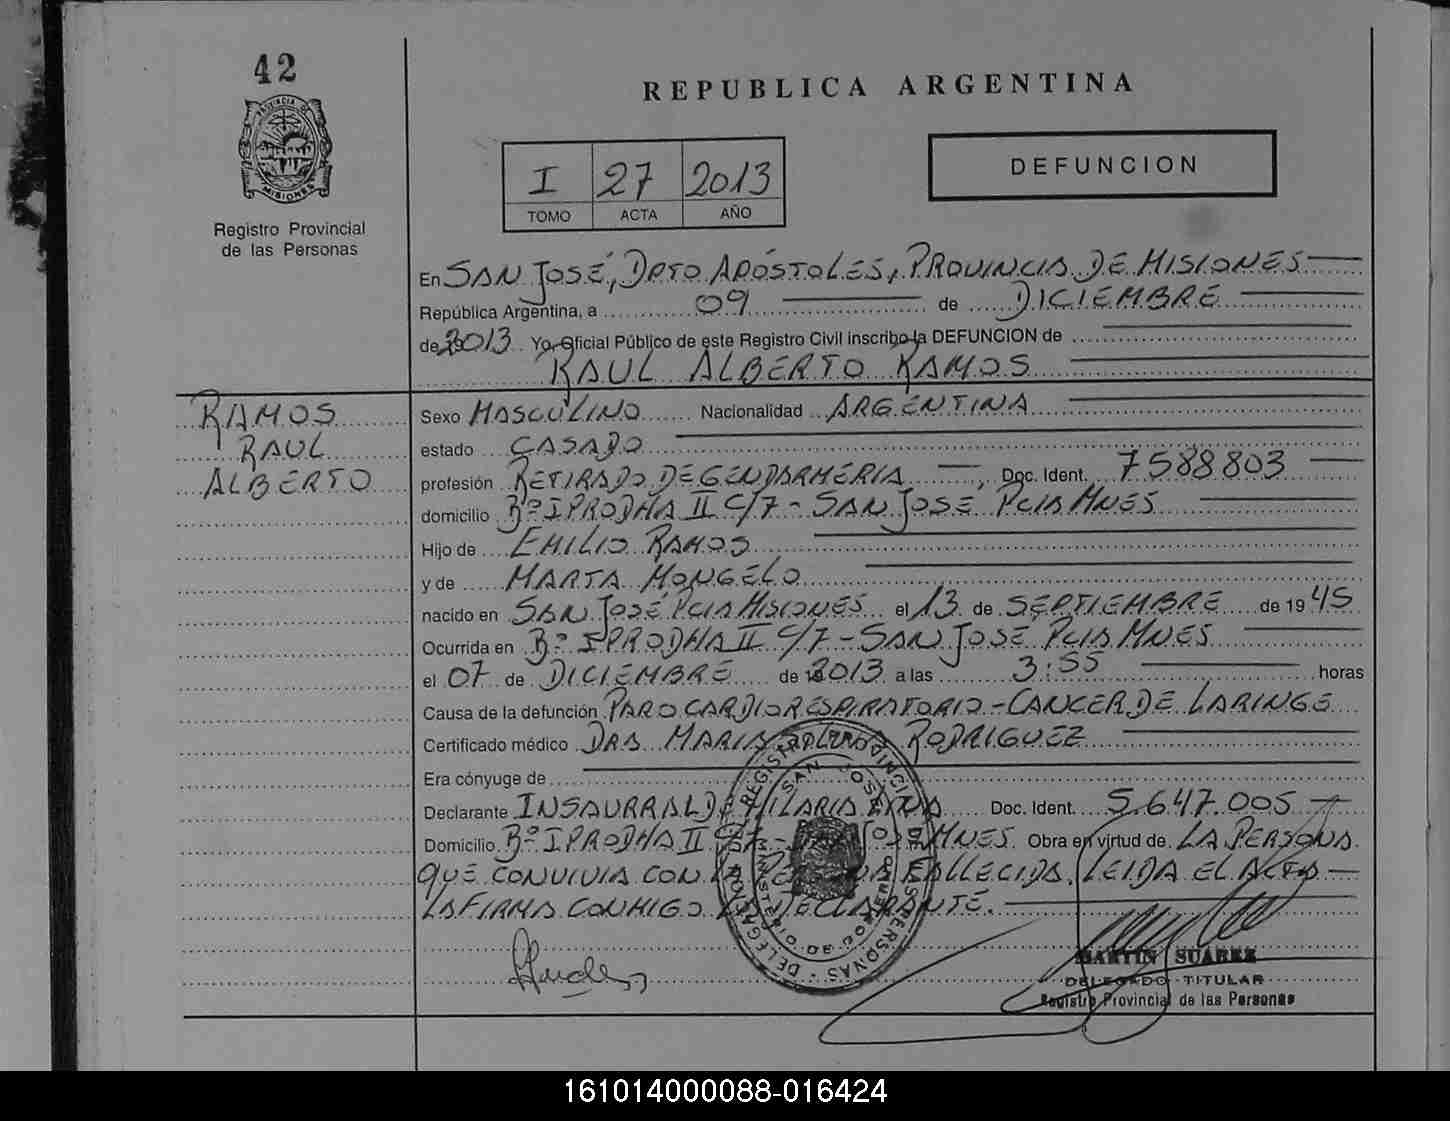 42
PROVINCIA DE
MISIONES
Registro Provincial
de las Personas
REPUBLICA ARGENTINA
I 27 2013
TOMO ACTA AÑO
DEFUNCION
En SAN JOSÉ, DPTO APÓSTOLES, PROVINCIA DE MISIONES
República Argentina, a 09 de DICIEMBRE
de 2013 Yo, Oficial Público de este Registro Civil inscribo la DEFUNCION de
RAUL ALBERTO RAMOS
RAMOS
RAUL
ALBERTO
Sexo MASCULINO Nacionalidad ARGENTINA
estado CASADO
profesión RETIRADO DE GENDARMERIA, Doc. Ident. 7588803
domicilio Bº IPRODHA II C/7 - SAN JOSE PCIA MNES
Hijo de EMILIO RAMOS
y de MARTA MONGELO
nacido en SAN JOSÉ PCIA MISIONES el 13 de SEPTIEMBRE de 1945
Ocurrida en Bº IPRODHA II C/7 - SAN JOSE PCIA MNES
el 07 de DICIEMBRE de 2013 a las 3:55 horas
Causa de la defunción PARO CARDIORESPIRATORIO - CANCER DE LARINGE
Certificado médico DRA MARIA RODRIGUEZ
Era cónyuge de
Declarante INSAURRALDE HILARIA Doc. Ident. 5.647.005
Domicilio Bº IPRODHA II C/7 - SAN JOSE MNES. Obra en virtud de LA PERSONA
QUE CONVIVIA CON LA PERSONA FALLECIDA. LEIDA EL ACTA
LA FIRMA CONMIGO LA DECLARANTE.
MARTIN SUAREZ
DELEGADO TITULAR
Registro Provincial de las Personas
161014000088-016424